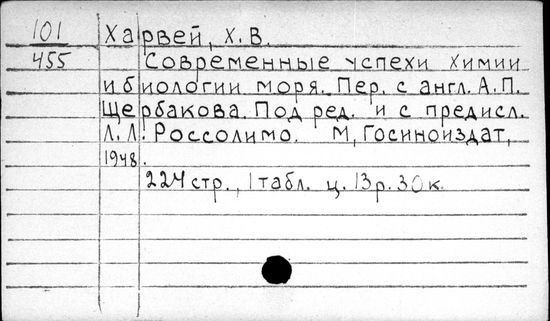 101 Харвей, Х.В.
455 Современные успехи химии
и биологии моря. Пер. с англ. А.П.
Щербакова. Под ред. и с предисл.
Л.Л. Россолимо. М, Госиноиздат,
1948.
224 стр., 1 табл. ц. 13р. 30к.